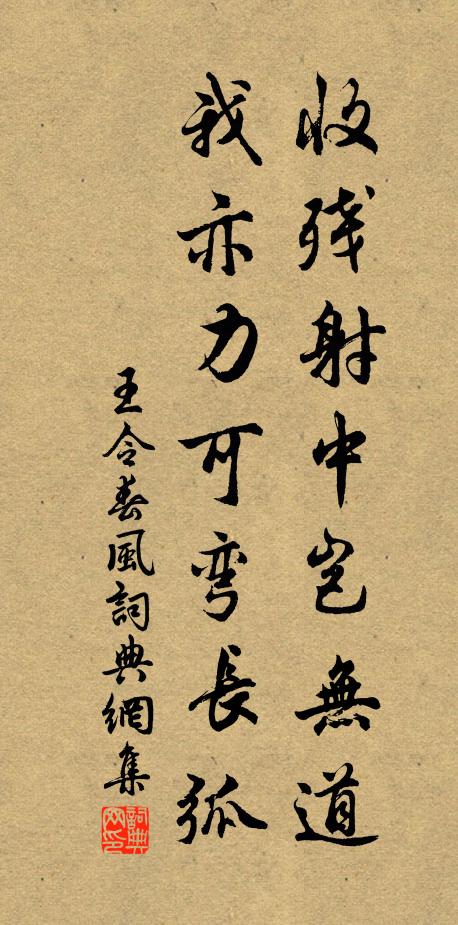 收残射中岂無道
我亦力可弯長弧
王令春風詞典網集
詞典网印